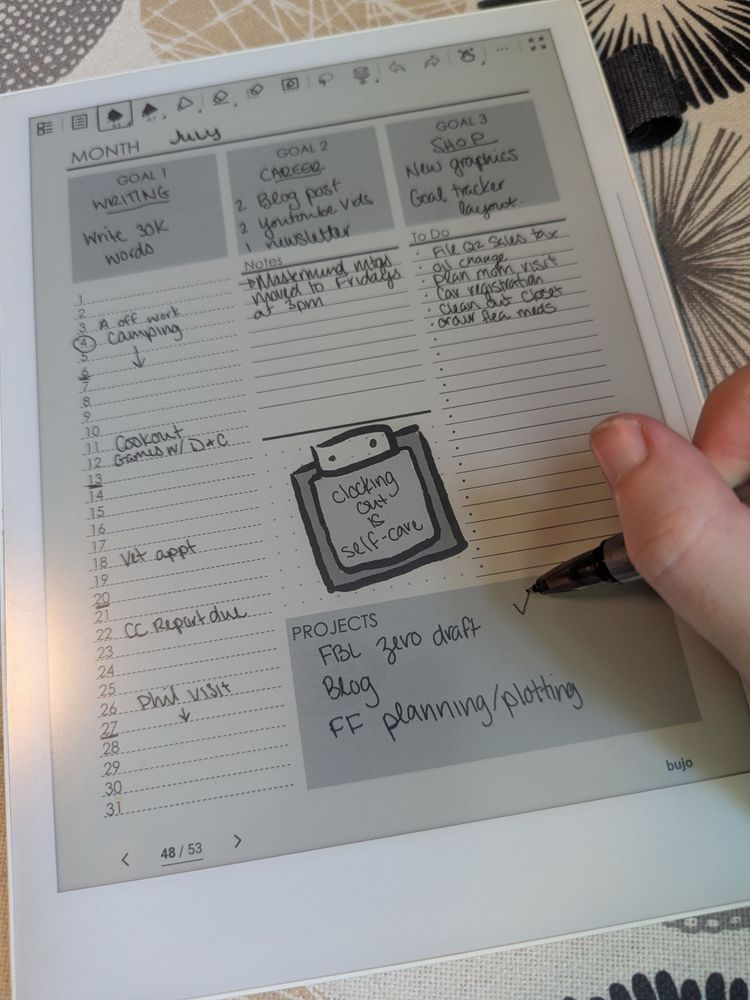 MONTH July
GOAL 1
WRITING
Write 30K
words
GOAL 2
CAREER
2 Blog post
2 youtoube vids
1 newsletter
GOAL 3
SHOP
New graphics
Goal tracker
layout.
1
2
3 A off work
4 Camping
5
6
7
8
9
10
11 Cookout
12 Games w/ D+C
13
14
15
16
17
18 Vet appt
19
20
21
22 CC Report due
23
24
25
26 Phil visit
27
28
29
30
31
Notes
Mastermind mtgs
moved to Fridays
at 3pm
To Do
• File Q2 Sales tax
• oil change
• Plan mom visit
• Car registration
• Clean out closet
• order flea meds
clocking
out
is
self-care
PROJECTS
FBL zero draft ✓
Blog
FF planning/plotting
bujo
< 48 / 53 >